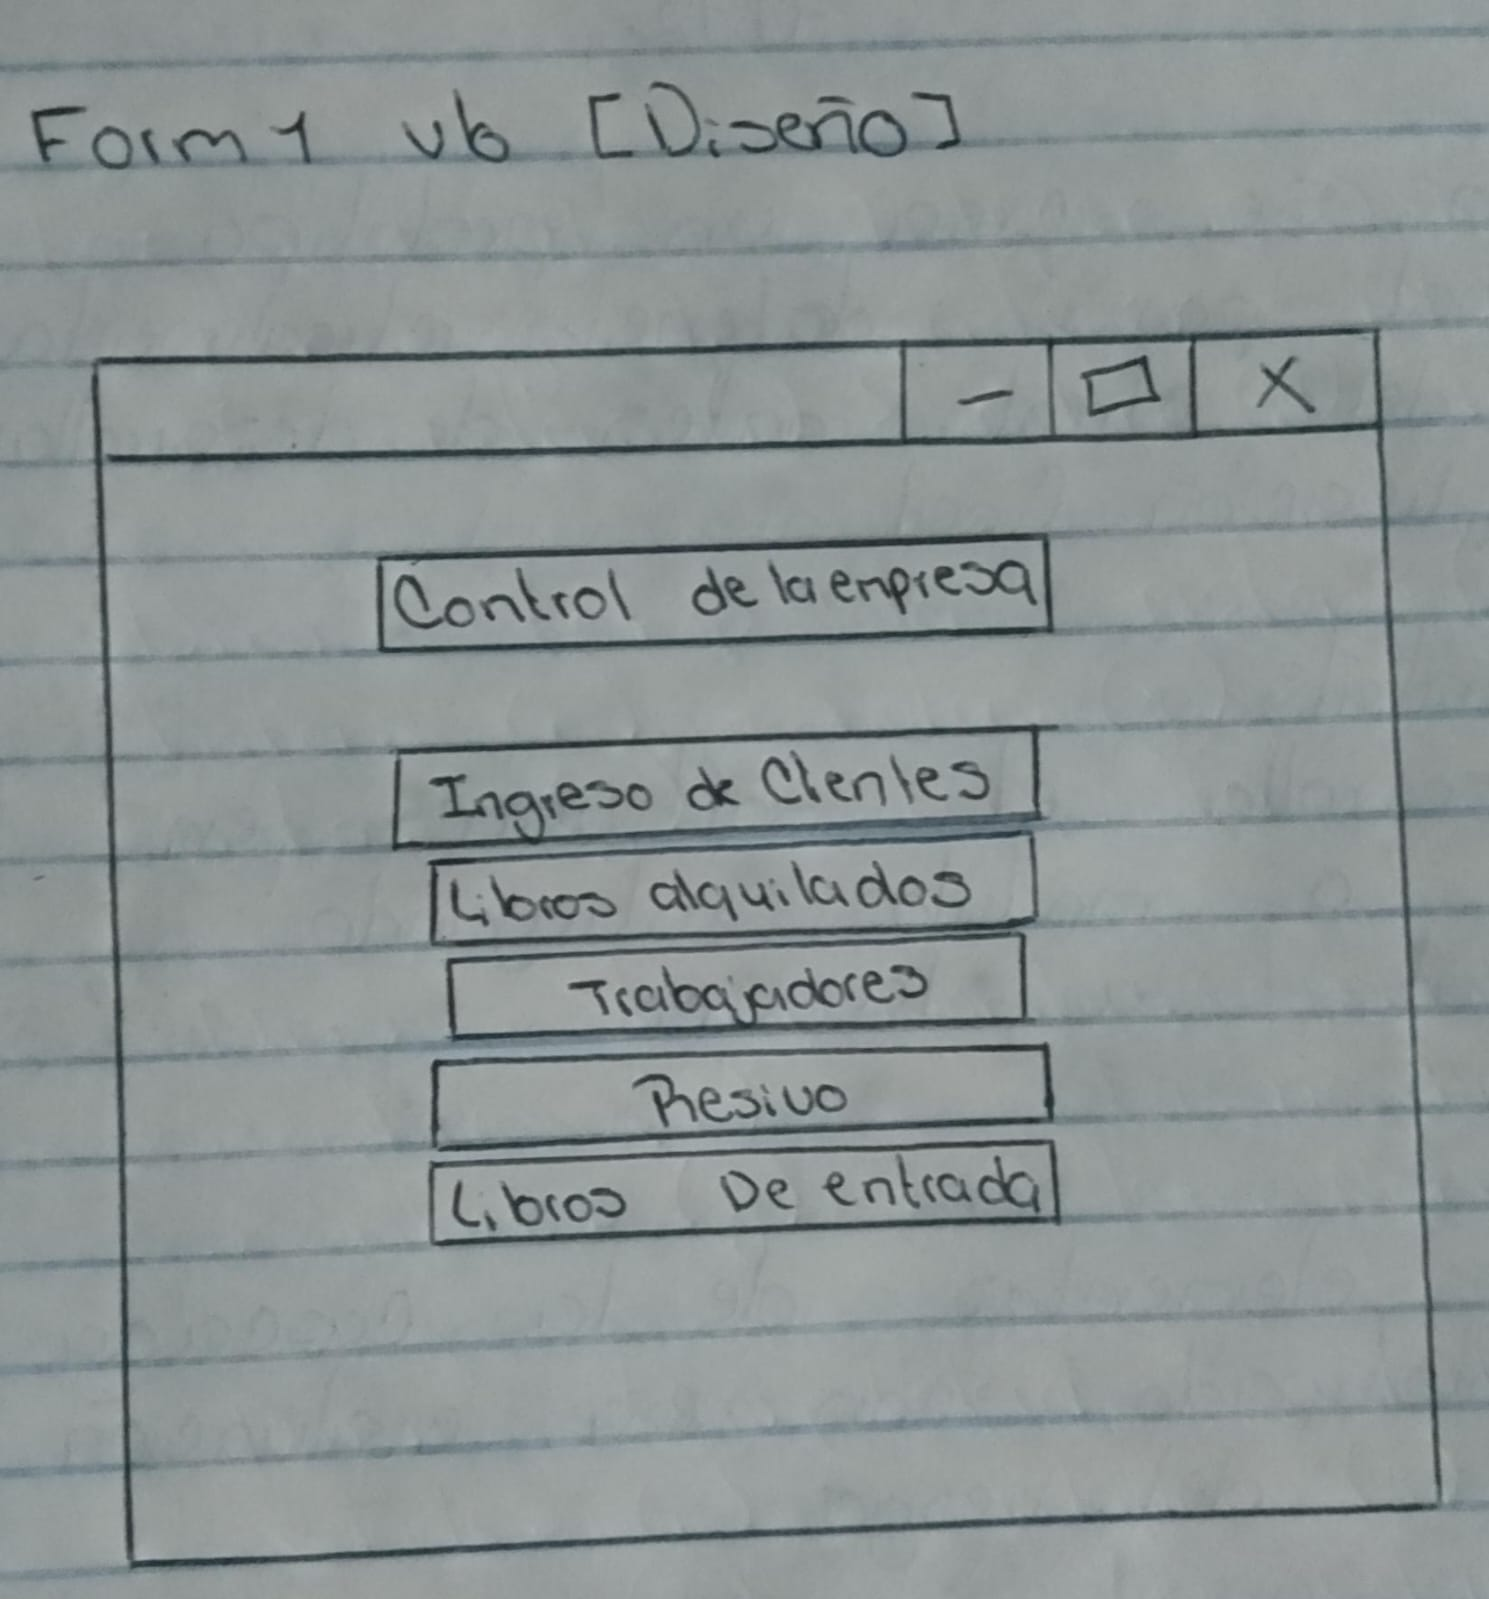 Form 1 vb [Diseño]
— □ X
Control de la enpresa
Ingreso de Clientes
Libros alquilados
Trabajadores
Resivo
Libros De entrada